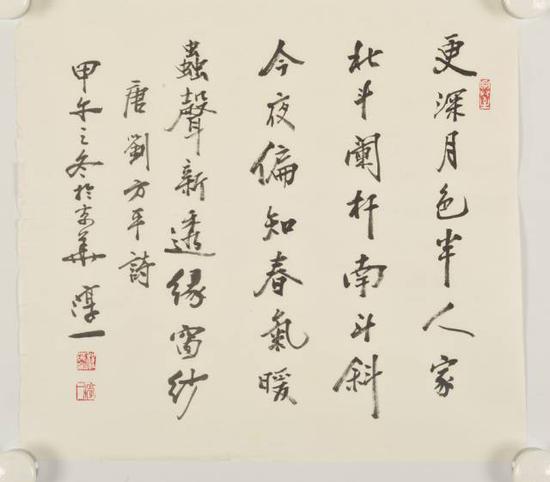 更深月色半人家
北斗闌杆南斗斜
今夜偏知春氣暖
蟲聲新透緣窗紗
唐劉方平詩
甲午之冬於京華 淳一